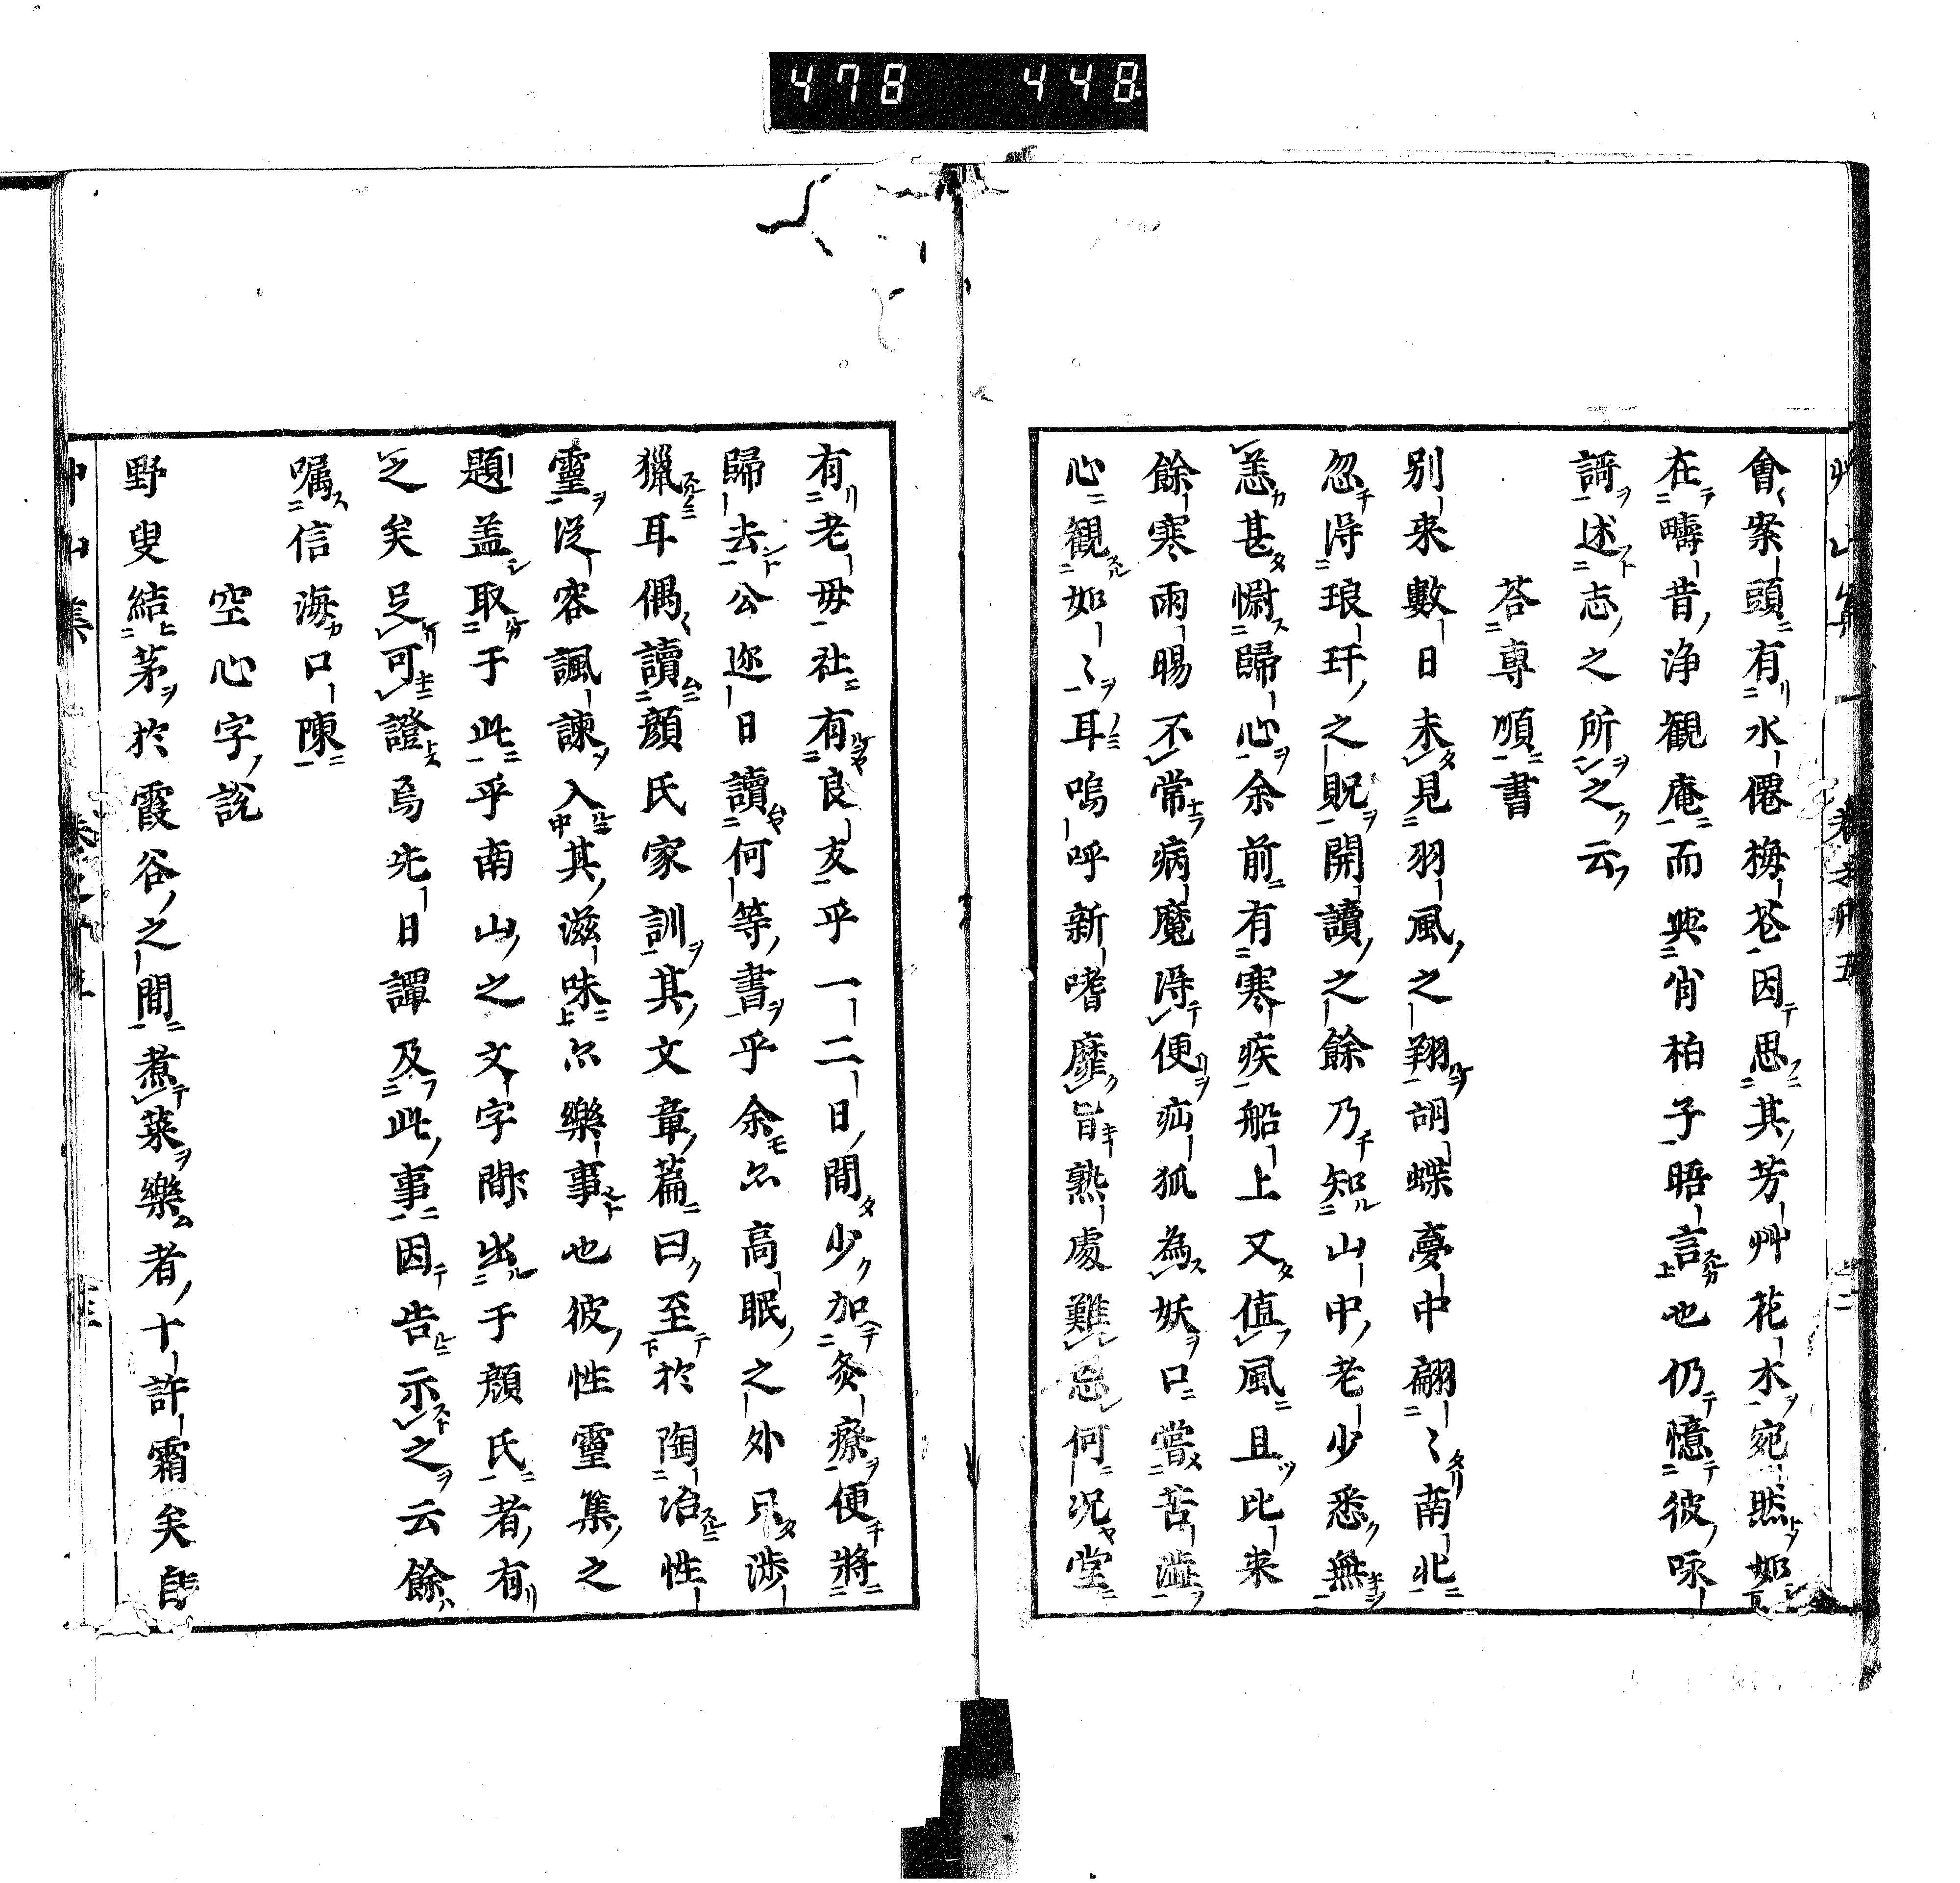 478 448
會案頭有水僊梅花因思其芳艸花木宛然如
在疇昔浄觀庵而與肖柏子晤言也仍憶彼咏
謌述志之所之云
荅專順書
别来數日未見羽風之翔胡蝶夢中翩〻南北
忽淂琅玕之貺開讀之餘乃知山中老少悉無
恙甚慰歸心余前有寒疾船上又値風且比来
餘寒雨暘不常病魔淂便疝狐為妖口嘗苦澁
心觀如〻耳嗚呼新嗜靡旨熟處難忘何况堂
有老母社有良友乎一二日間少加灸療便將
歸去公迩日讀何等書乎余亦高眠之外只渉
獵耳偶讀顔氏家訓其文章篇曰至於陶冶性
靈從容諷諫入其滋味亦樂事也彼性靈集之
題盖取于此乎南山之文字間出于顔氏者有
之矣足可證焉先日譚及此事因告示之云餘
嘱信海口陳
空心字說
野叟結茅於霞谷之間煮菜樂者十許霜矣自